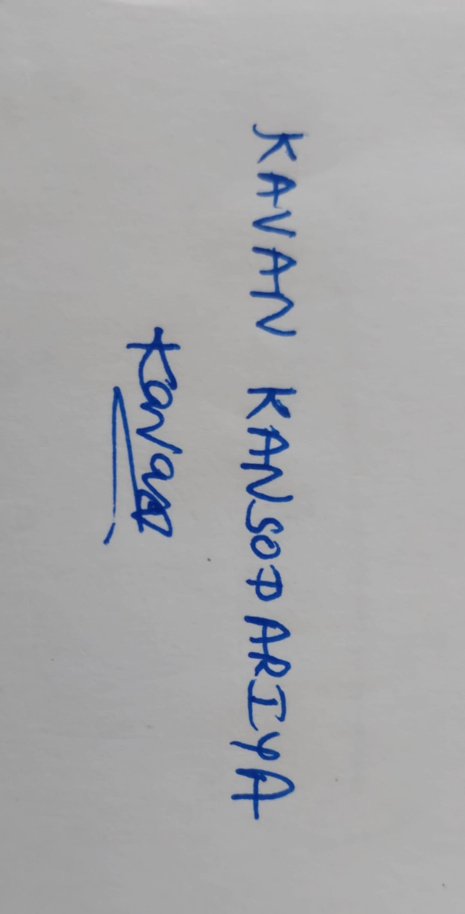 KAVAN KANSODARIYA
Kavan